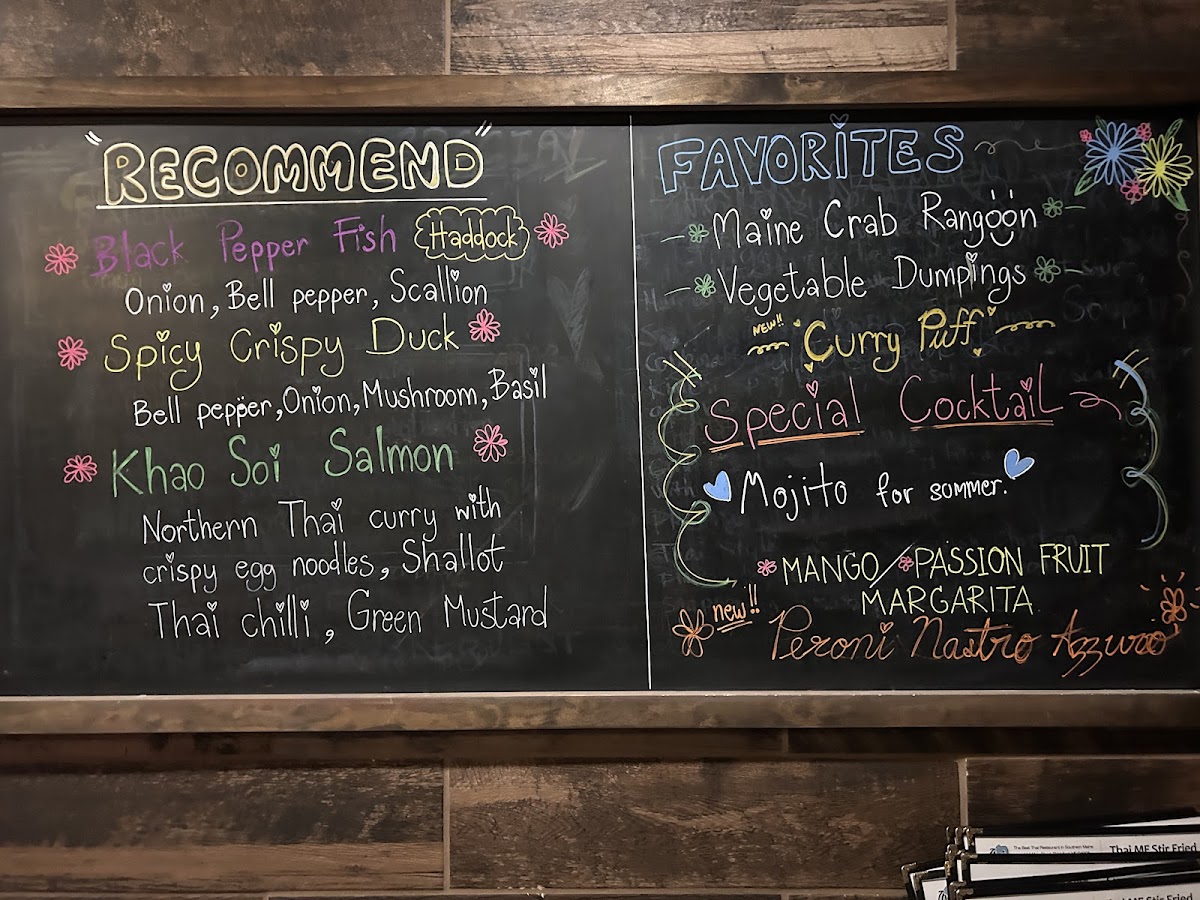 "RECOMMEND"
Black Pepper Fish (Haddock)
Onion, Bell pepper, Scallion
Spicy Crispy Duck
Bell pepper, Onion, Mushroom, Basil
Khao Soi Salmon
Northern Thai curry with
crispy egg noodles, Shallot
Thai chilli, Green Mustard
FAVORITES
Maine Crab Rangoon
Vegetable Dumpings
NEW!! Curry Puff
Special Cocktail
Mojito for sommer.
MANGO/PASSION FRUIT
MARGARITA
new!!
Peroni Nastro Azzuro
The Best Thai Restaurant in Southern Maine
Thai ME Stir Fried